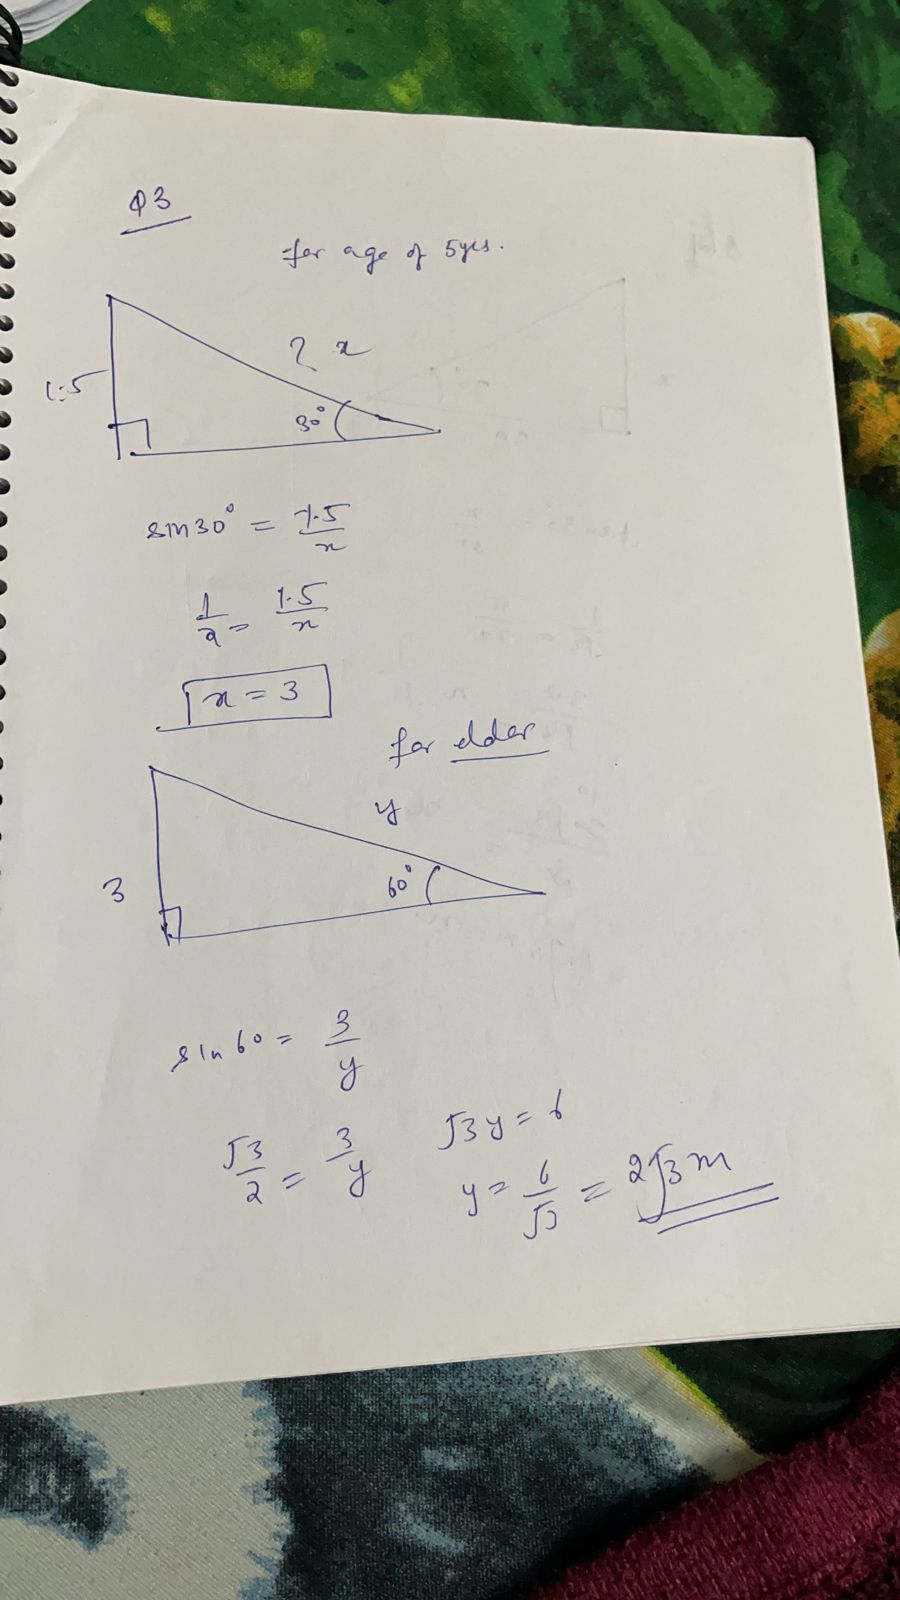 Q3
for age of 5yrs.
? x
1.5
30°
sin30° = 1.5/x
1/2 = 1.5/x
x = 3
for elder
y
3
60°
sin 60 = 3/y
√3/2 = 3/y
√3y = 6
y = 6/√3 = 2√3 m